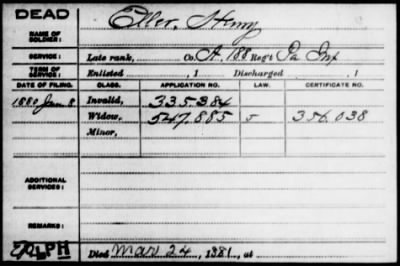 DEAD
Eller, Henry
NAME OF SOLDIER:
SERVICE: Late rank, Co. A, 188 Reg't Pa Inf
TERM OF SERVICE: Enlisted , 1 Discharged , 1
DATE OF FILING. CLASS. APPLICATION NO. LAW. CERTIFICATE NO.
1880 Jan 8 Invalid, 335.384
Widow, 547.885 J 356.038
Minor,
ADDITIONAL SERVICES:
REMARKS:
Died Mar 24, 1881, at